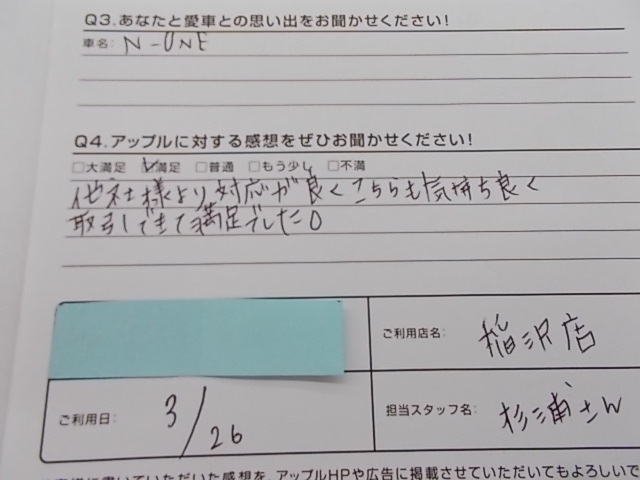 Q3.あなたと愛車との思い出をお聞かせください!
車名: N-ONE
Q4.アップルに対する感想をぜひお聞かせください!
□大満足 ☑満足 □普通 □もう少し □不満
他社様より対応が良くこちらも気持ち良く
取引できて満足でした。
ご利用店名: 稲沢店
ご利用日: 3/26
担当スタッフ名: 杉浦さん
お客様に書いていただいた感想を、アップルHPや広告に掲載させていただいてもよろしいで